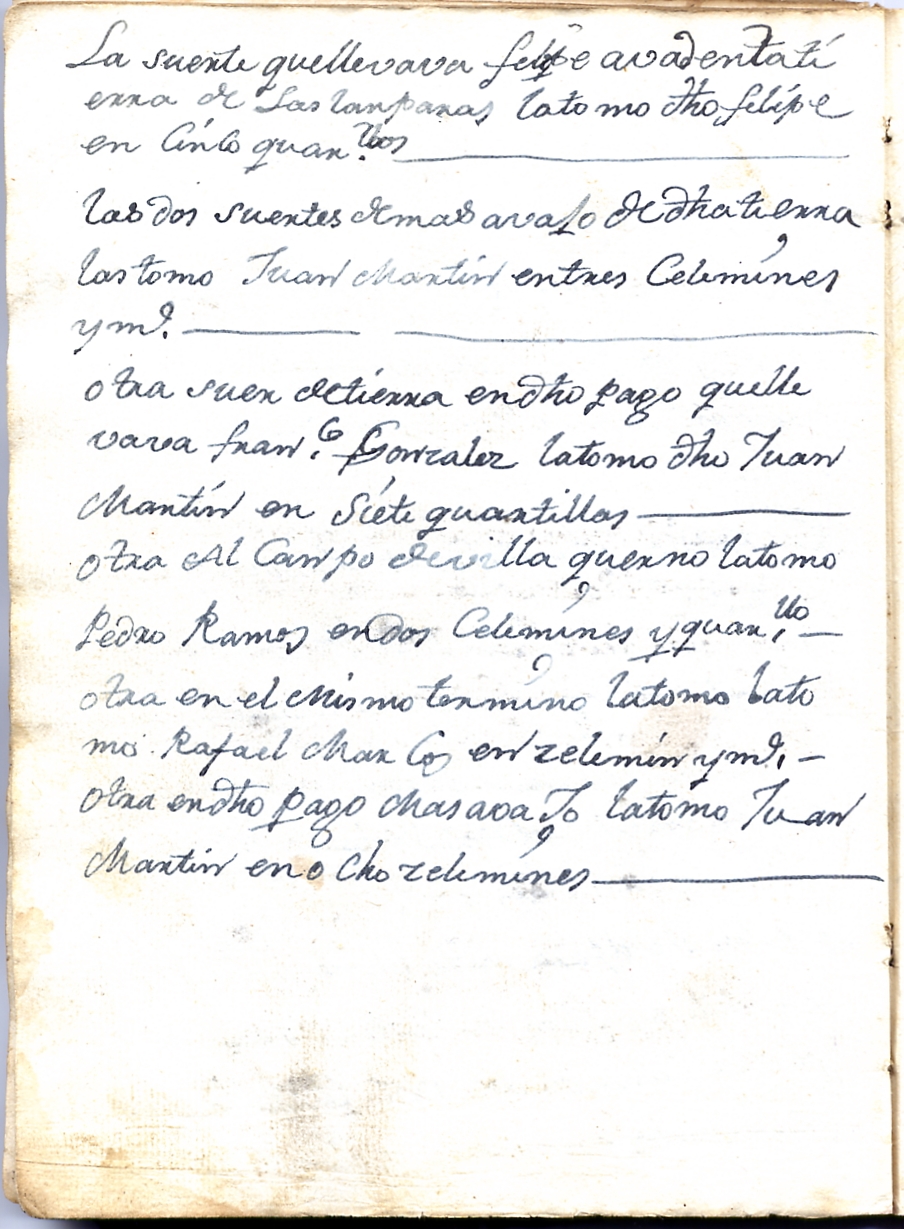 La suerte quellevava felipe avad en tati
erra de Las lanparas latomo dho felipe
en Cinco quar.llos
las dos suertes de mas avajo de dha tierra
las tomo Juan Martin entres Celemines
y mo.
otra suer de tierra en dho pago quelle
vava fran.co Gonzalez latomo dho Juan
Martin en Siete quartillos
otra Al Canpo de villa querno latomo
Pedro Ramos en dos Celemines y quar.llo
otra en el Mismo termino latomo lato
mo Rafael Marcos en zelemin y mo.
otra en dho pago Mas avaJo latomo Juan
Martin en o cho zelemines